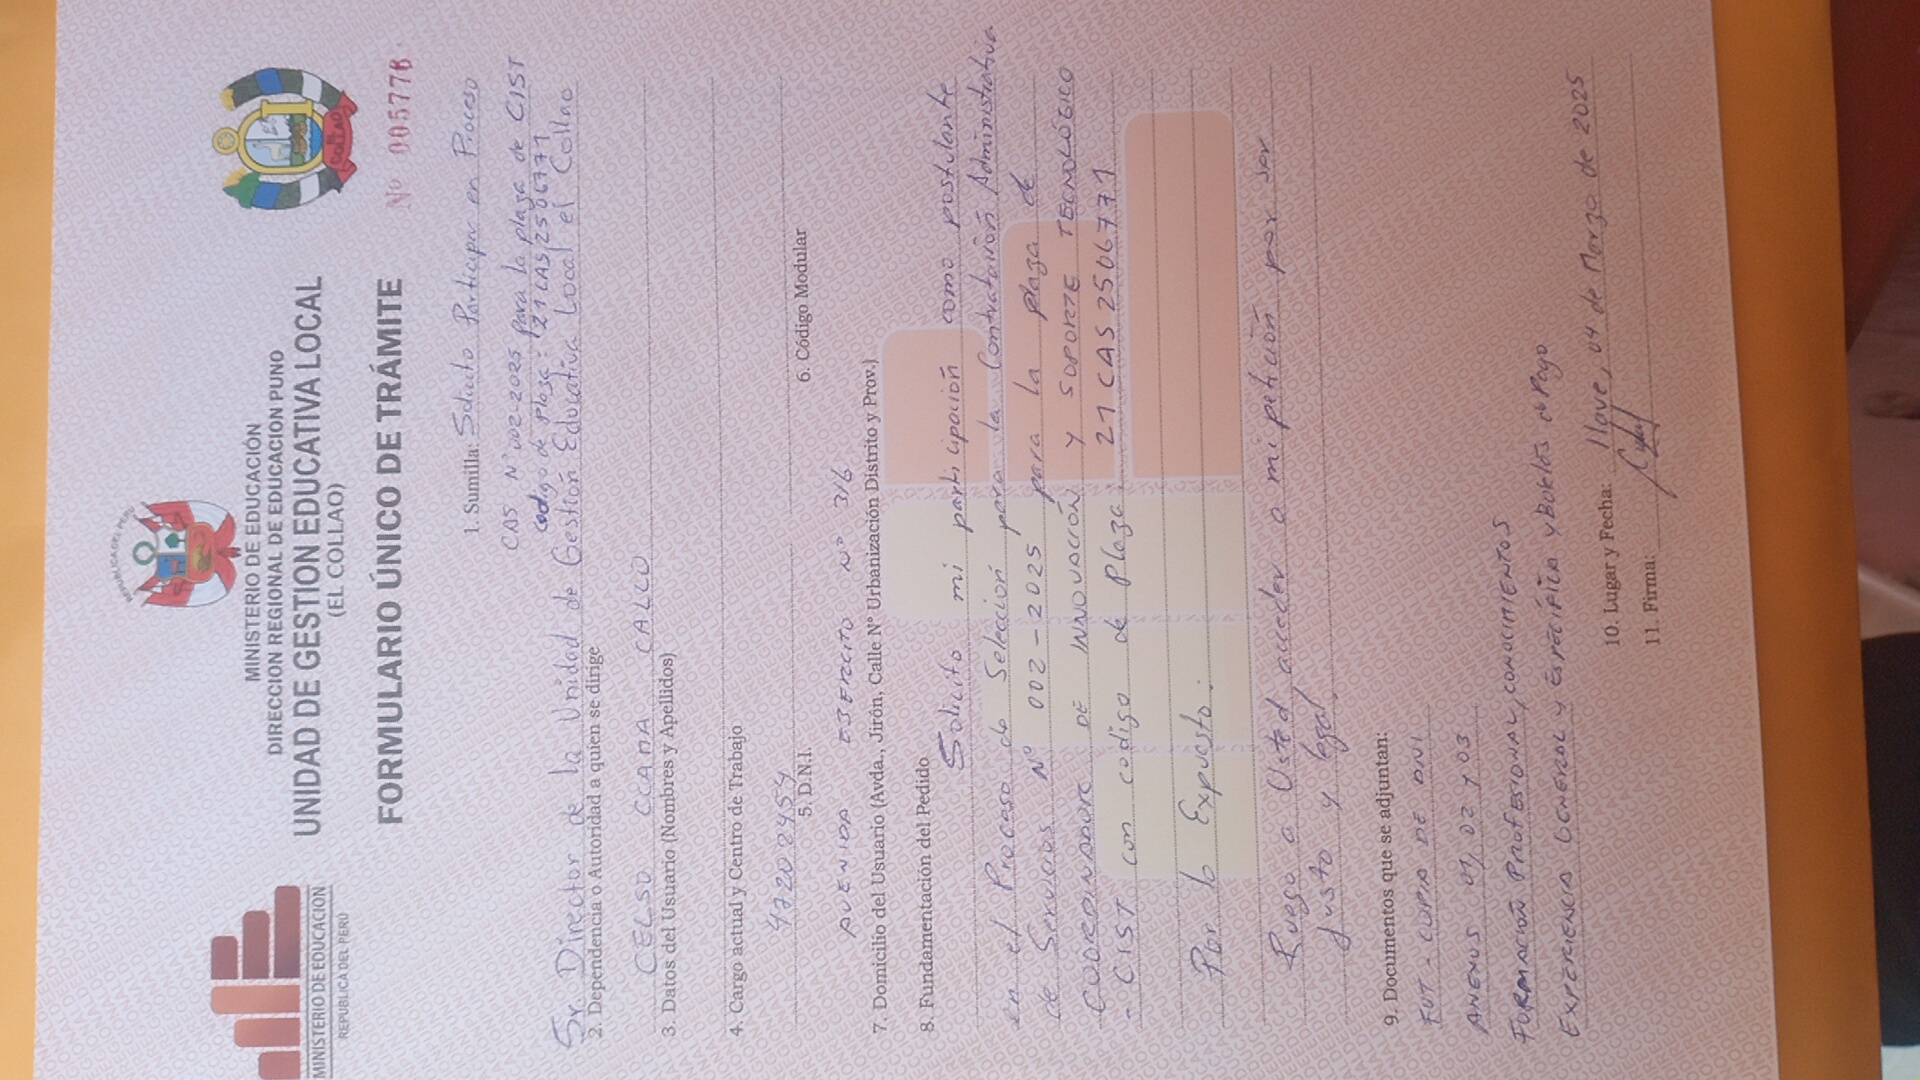 MINISTERIO DE EDUCACION
REPUBLICA DEL PERÚ
REPUBLICA DEL PERU
MINISTERIO DE EDUCACIÓN
DIRECCION REGIONAL DE EDUCACION PUNO
UNIDAD DE GESTION EDUCATIVA LOCAL
(EL COLLAO)
EL COLLAO
FORMULARIO ÚNICO DE TRÁMITE
Nº 005776
1. Sumilla: Solicito Participar en Proceso
CAS Nº 002-2025 para la plaza de CIST
codigo de plaza: 21CAS2506771
Sr. Director de la Unidad de Gestión Educativa Local el Collao
2. Dependencia o Autoridad a quien se dirige
CELSO CCAMA CALLO
3. Datos del Usuario (Nombres y Apellidos)
4. Cargo actual y Centro de Trabajo
5. D.N.I.
6. Código Modular
AVENIDA EJERCITO Nº 316
7. Domicilio del Usuario (Avda., Jirón, Calle Nº Urbanización Distrito y Prov.)
8. Fundamentación del Pedido
Solicito mi participación como postulante
en el Proceso de Selección para la Contratación Administrativa
de Servicios Nº 002-2025 para la plaza de
COORDINADOR DE INNOVACIÓN Y SOPORTE TECNOLÓGICO
- CIST con código de Plaza: 21CAS2506771
Por lo Expuesto:
Ruego a Usted acceder a mi petición por ser
Justo y legal.
9. Documentos que se adjuntan:
FUT - COPIA DE DNI
ANEXOS 01, 02 Y 03
FORMACIÓN PROFESIONAL, CONOCIMIENTOS
EXPERIENCIA GENERAL Y ESPECÍFICA y boletas de Pago
10. Lugar y Fecha: Ilave, 04 de Marzo de 2025
11. Firma: